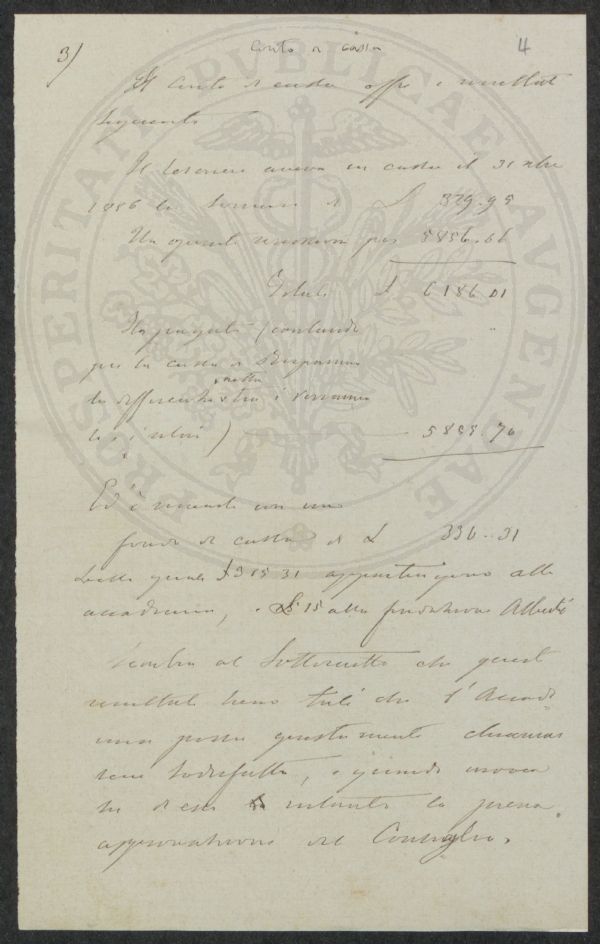 3)
Conto di cassa
4
Il Conto di cassa offre i resultati
seguenti
Il tesoriere aveva in cassa il 31 Xbre
1886 la somma di L 329.95
Ha quindi riscosso per 5856.06
Totale L 6186.01
Ha pagato (contando
per la cassa di Risparmio
la differenza netta tra i versamen
ti e i ritiri) 5849 70
Ed è rimasto con un
fondo di cassa di L 336..31
delle quali L 315 31 appartengono alla
accademia, e L 15 alla fondazione Alberti
Sembra al Sottoscritto che questi
resultati sieno tali che l'Accade
mia possa giustamente chiamar
sene sodisfatta, e quindi
di essi la piena
approvazione del Consiglio.
PROSPERITATI PUBLICAE AVGENDAE